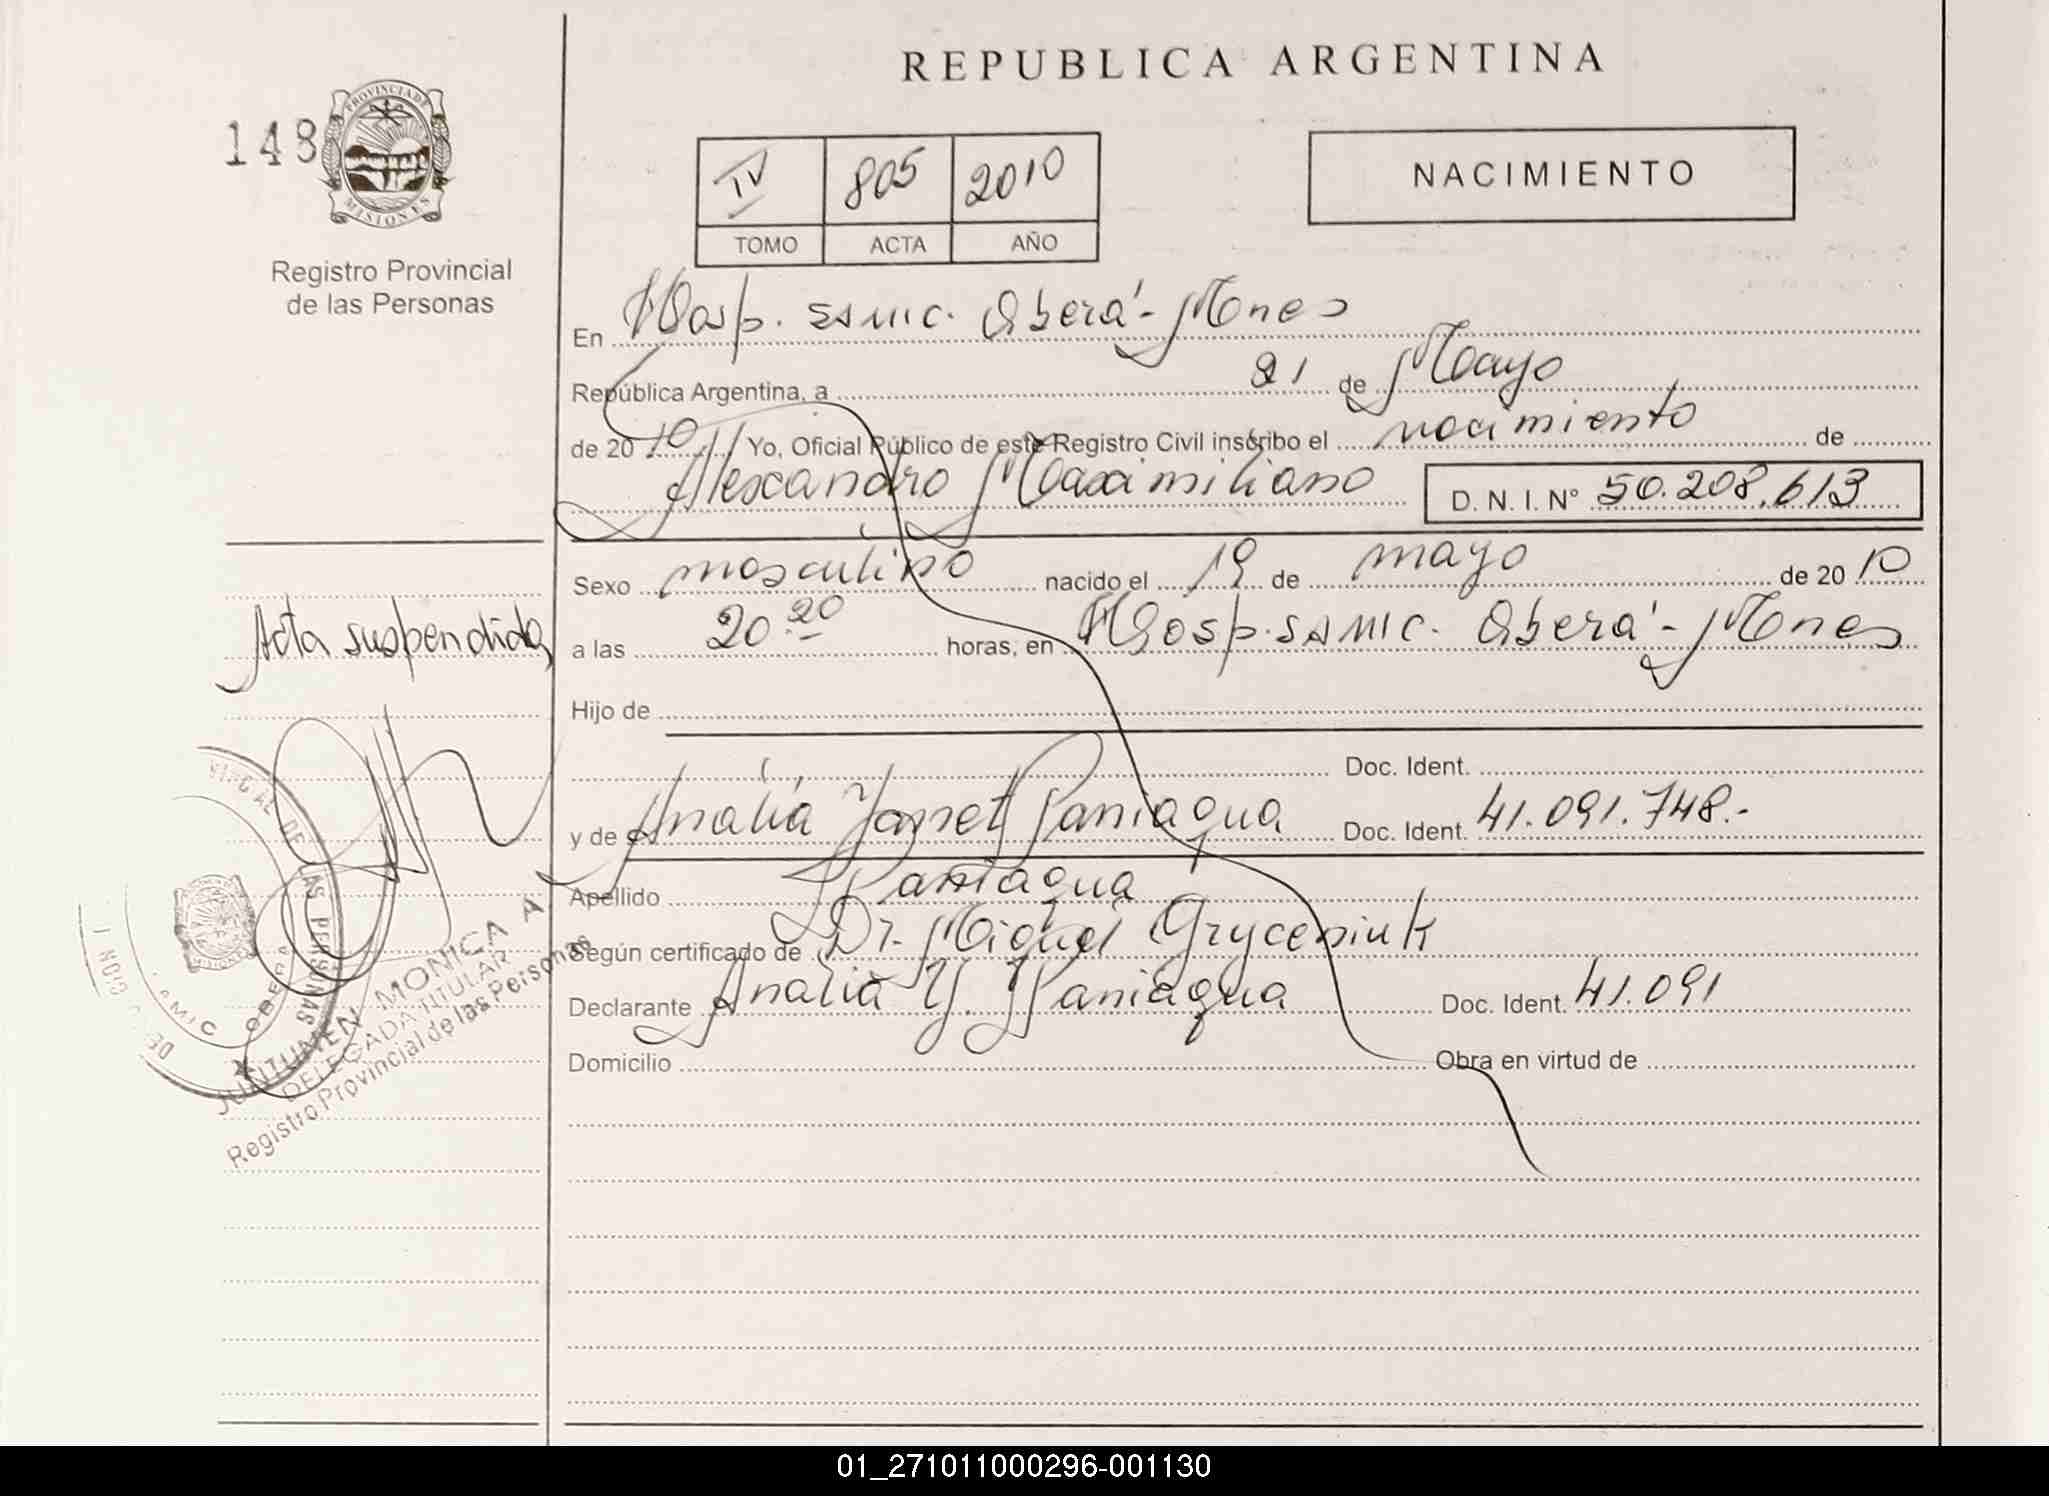 REPUBLICA ARGENTINA
148
PROVINCIA DE
MISIONES
Registro Provincial
de las Personas
IV 805 2010
TOMO ACTA AÑO
NACIMIENTO
En Hosp. SAMIC. Oberá - Mnes
República Argentina, a 21 de Mayo
de 2010 Yo, Oficial Público de este Registro Civil inscribo el nacimiento de
Alexandro Maximiliano D. N. I. N° 50.208.613
Sexo masculino nacido el 19 de mayo de 2010
a las 20.20 horas, en Hosp. SAMIC. Oberá - Mnes
Acta suspendida
Hijo de
Doc. Ident.
y de Analía Yannet Paniagua Doc. Ident. 41.091.748.-
Apellido Paniagua
Según certificado de Dr. Miguel Grycepiuk
Declarante Analia Y. Paniagua Doc. Ident. 41.091
Domicilio Obra en virtud de
MONICA A
DELEGADA TITULAR
Registro Provincial de las Personas
01_271011000296-001130